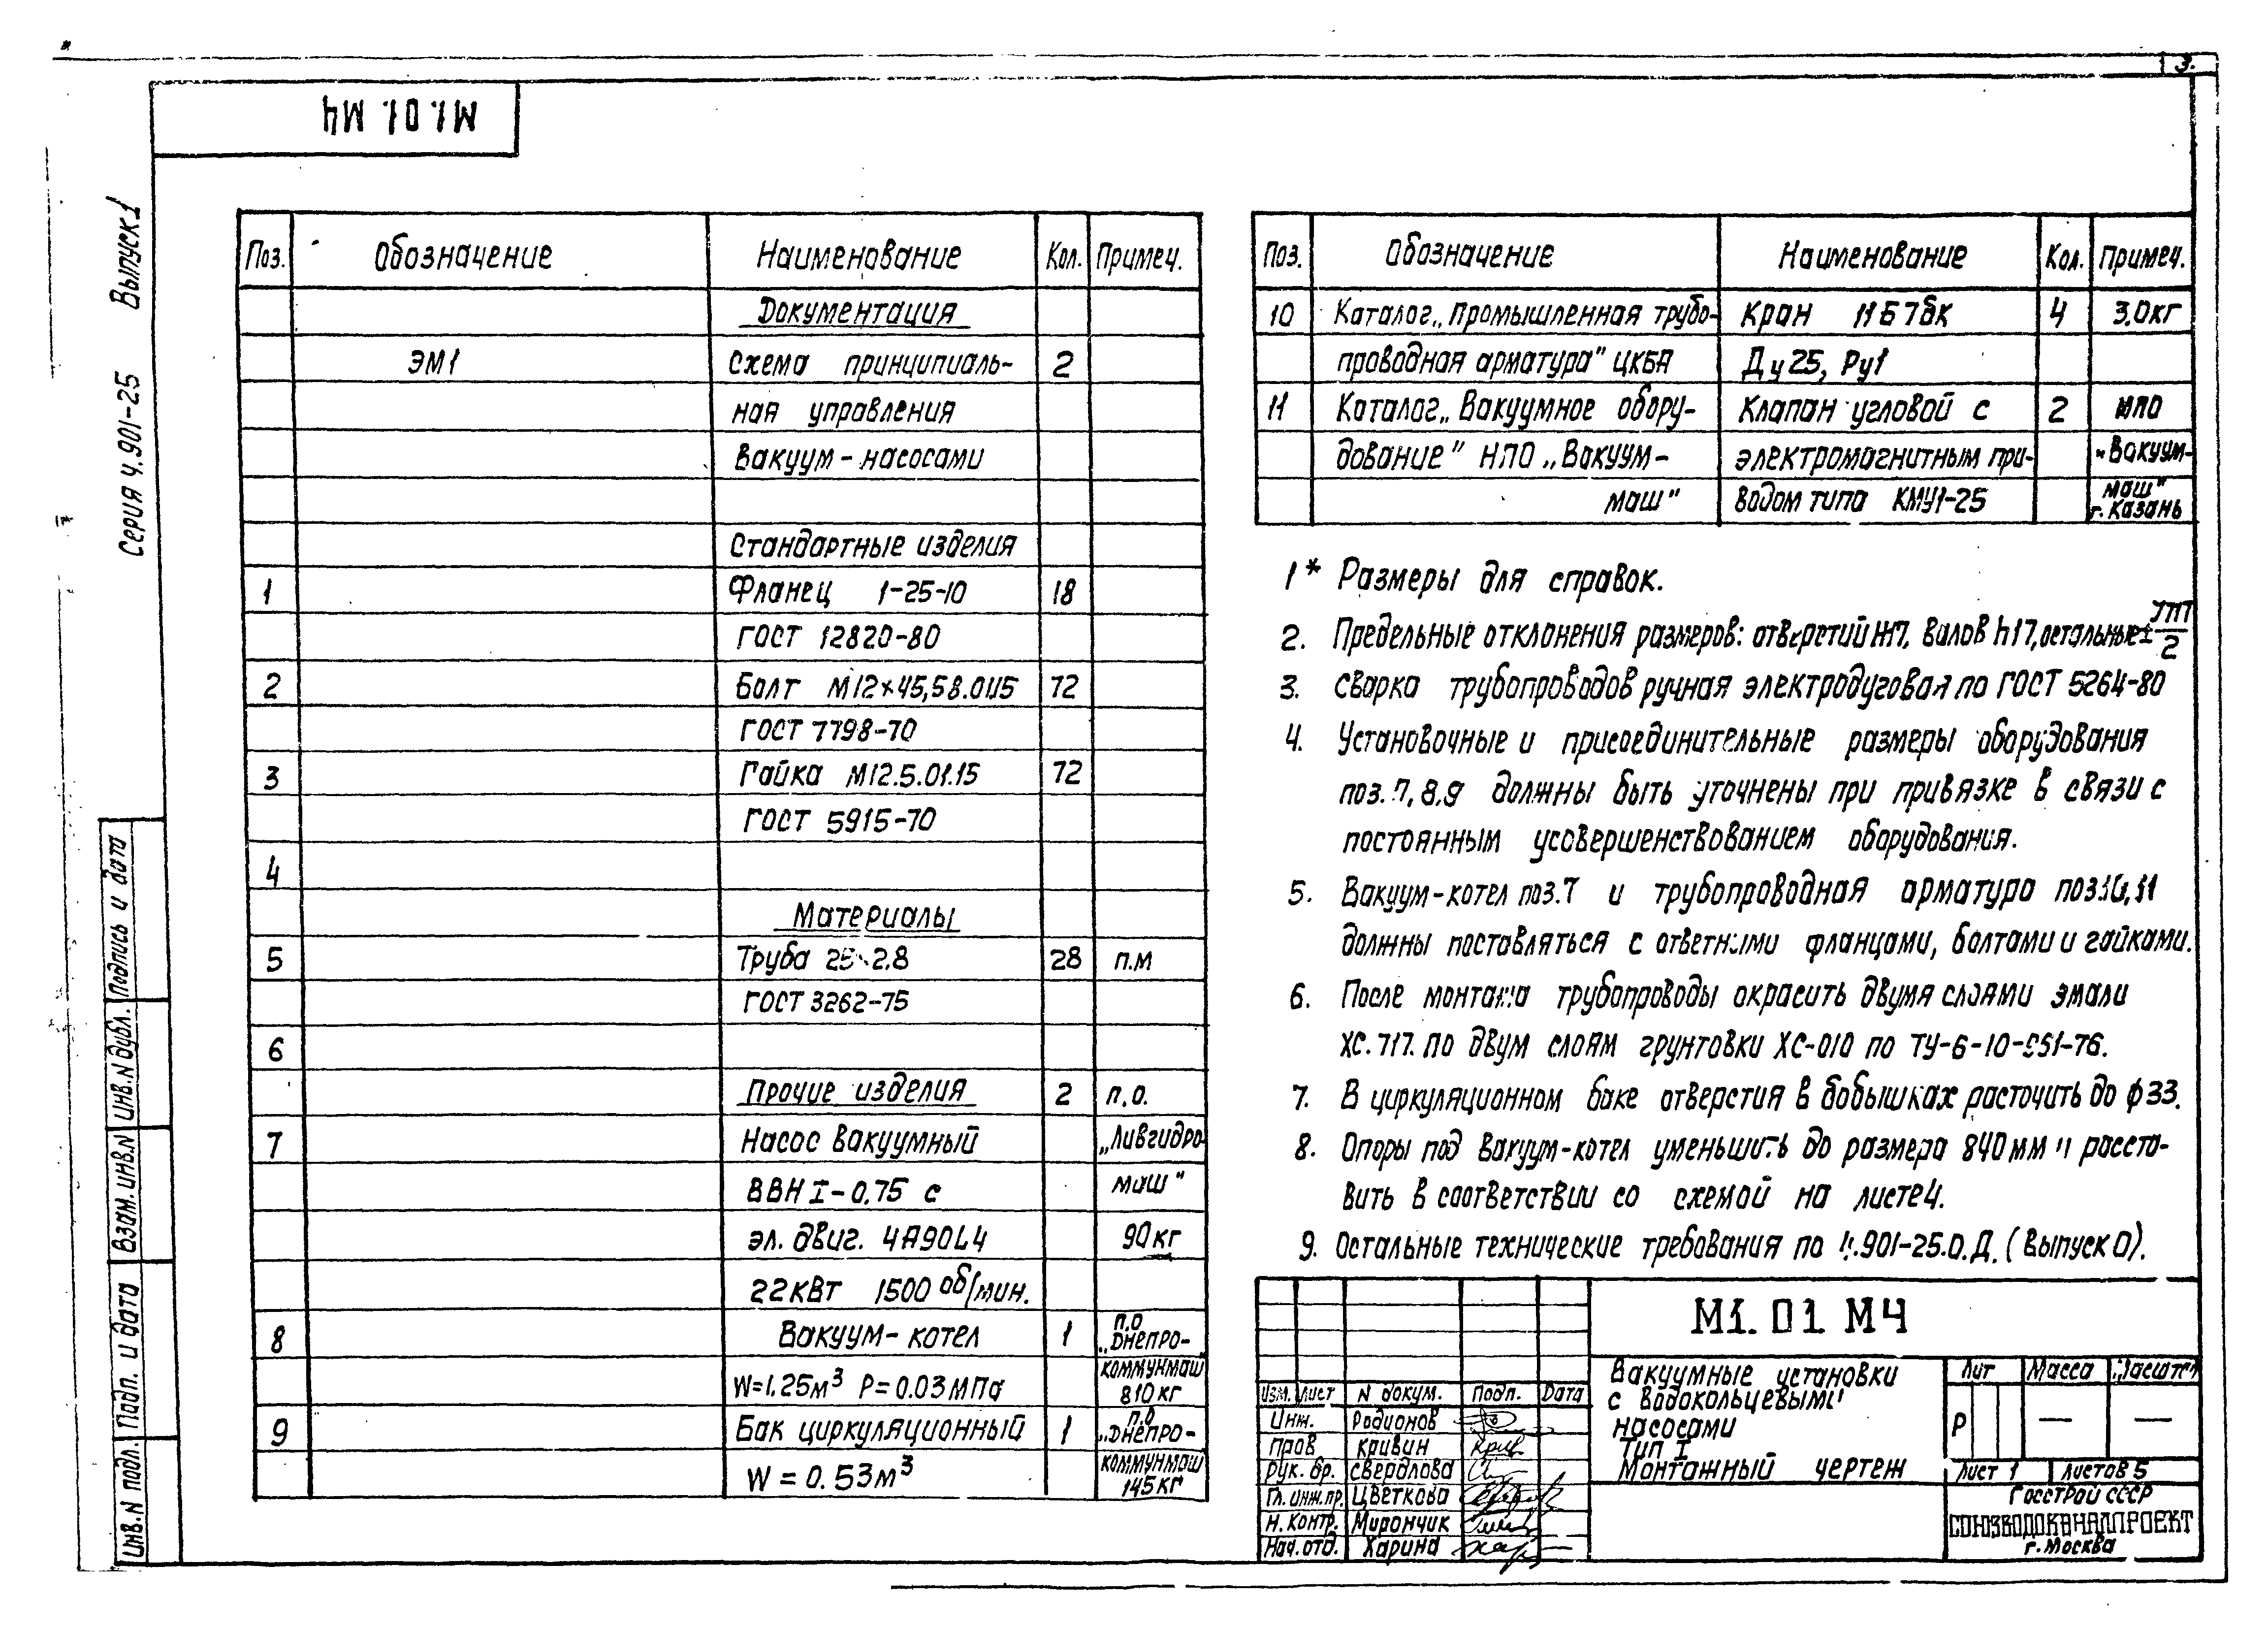 3.
М1.01.МЧ
Серия 4.901-25 Выпуск 1
Поз. Обозначение Наименование Кол. Примеч.
Документация
ЭМ1 Схема принципиаль- 2
ная управления
вакуум-насосами
Стандартные изделия
1 Фланец 1-25-10 18
ГОСТ 12820-80
2 Болт М12×45,58.0115 72
ГОСТ 7798-70
3 Гайка М12.5.01.15 72
ГОСТ 5915-70
4
Материалы
5 Труба 25×2.8 28 п.м
ГОСТ 3262-75
6
Прочие изделия 2 п.о.
7 Насос вакуумный „Ливгидро-
ВВН I-0.75 с маш"
эл. двиг. 4А90L4 90кг
22кВт 1500 об/мин.
8 Вакуум-котел 1 п.о „Днепро-
W=1.25м³ Р=0.03мПа коммунмаш 810кг
9 Бак циркуляционный 1 п.о „Днепро-
W=0.53м³ коммунмаш 145кг
Поз. Обозначение Наименование Кол. Примеч.
10 Каталог „Промышленная трубо- Кран 11Б7бк 4 3.0кг
проводная арматура" ЦКБА Ду25, Ру1
11 Каталог „Вакуумное обору- Клапан угловой с 2 НПО
дование" НПО „Вакуум- электромагнитным при- „Вакуум-
маш" водом типа КМУ1-25 маш" г. Казань
1* Размеры для справок.
2. Предельные отклонения размеров: отверстий Н17, валов h17, остальные ± JT17/2
3. Сварка трубопроводов ручная электродуговая по ГОСТ 5264-80
4. Установочные и присоединительные размеры оборудования
поз. 7, 8, 9 должны быть уточнены при привязке в связи с
постоянным усовершенствованием оборудования.
5. Вакуум-котел поз.7 и трубопроводная арматура поз.10,11
должны поставляться с ответными фланцами, болтами и гайками.
6. После монтажа трубопроводы окрасить двумя слоями эмали
ХС.717. по двум слоям грунтовки ХС-010 по ТУ-6-10-951-76.
7. В циркуляционном баке отверстия в бобышках расточить до ф33.
8. Опоры под вакуум-котел уменьшить до размера 840мм и расста-
вить в соответствии со схемой на листе4.
9. Остальные технические требования по 4.901-25.0.Д. (Выпуск 0).
М1.01 МЧ
Вакуумные установки
с водокольцевыми
насосами
Тип I
Монтажный чертеж
Лит Масса Масштаб
Р — —
Лист 1 Листов 5
Госстрой СССР
СОЮЗВОДОКАНАЛПРОЕКТ
г. Москва
Изм. Лист N докум. Подп. Дата
Инж. Родионов
Пров Кривин
Рук. бр. Свердлова
Гл. инж.пр. Цветкова
Н. контр. Мирончик
Нач. отд. Харина
Инв. N подл. Подп. и дата Взам. инв. N Инв. N дубл. Подпись и дата